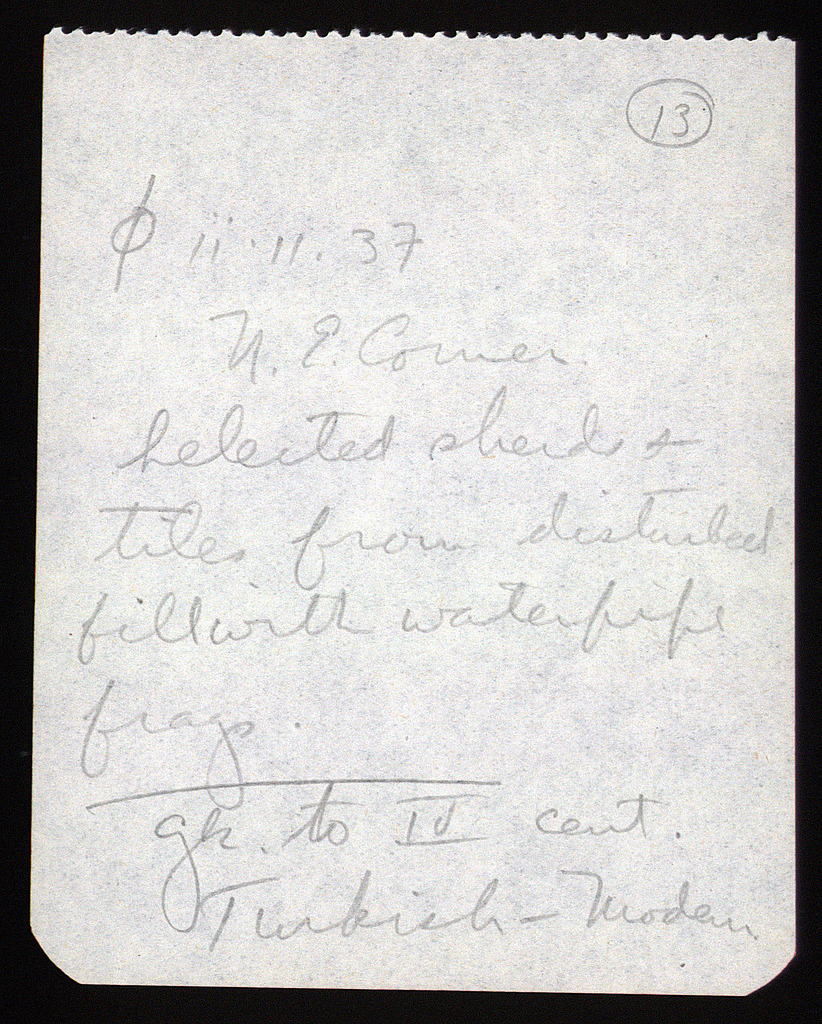 13
Φ ii·11.37
N. E. Corner.
Selected sherds +
tiles from disturbed
fill with waterpipe
frags.
gk. to IV cent.
Turkish - Modern